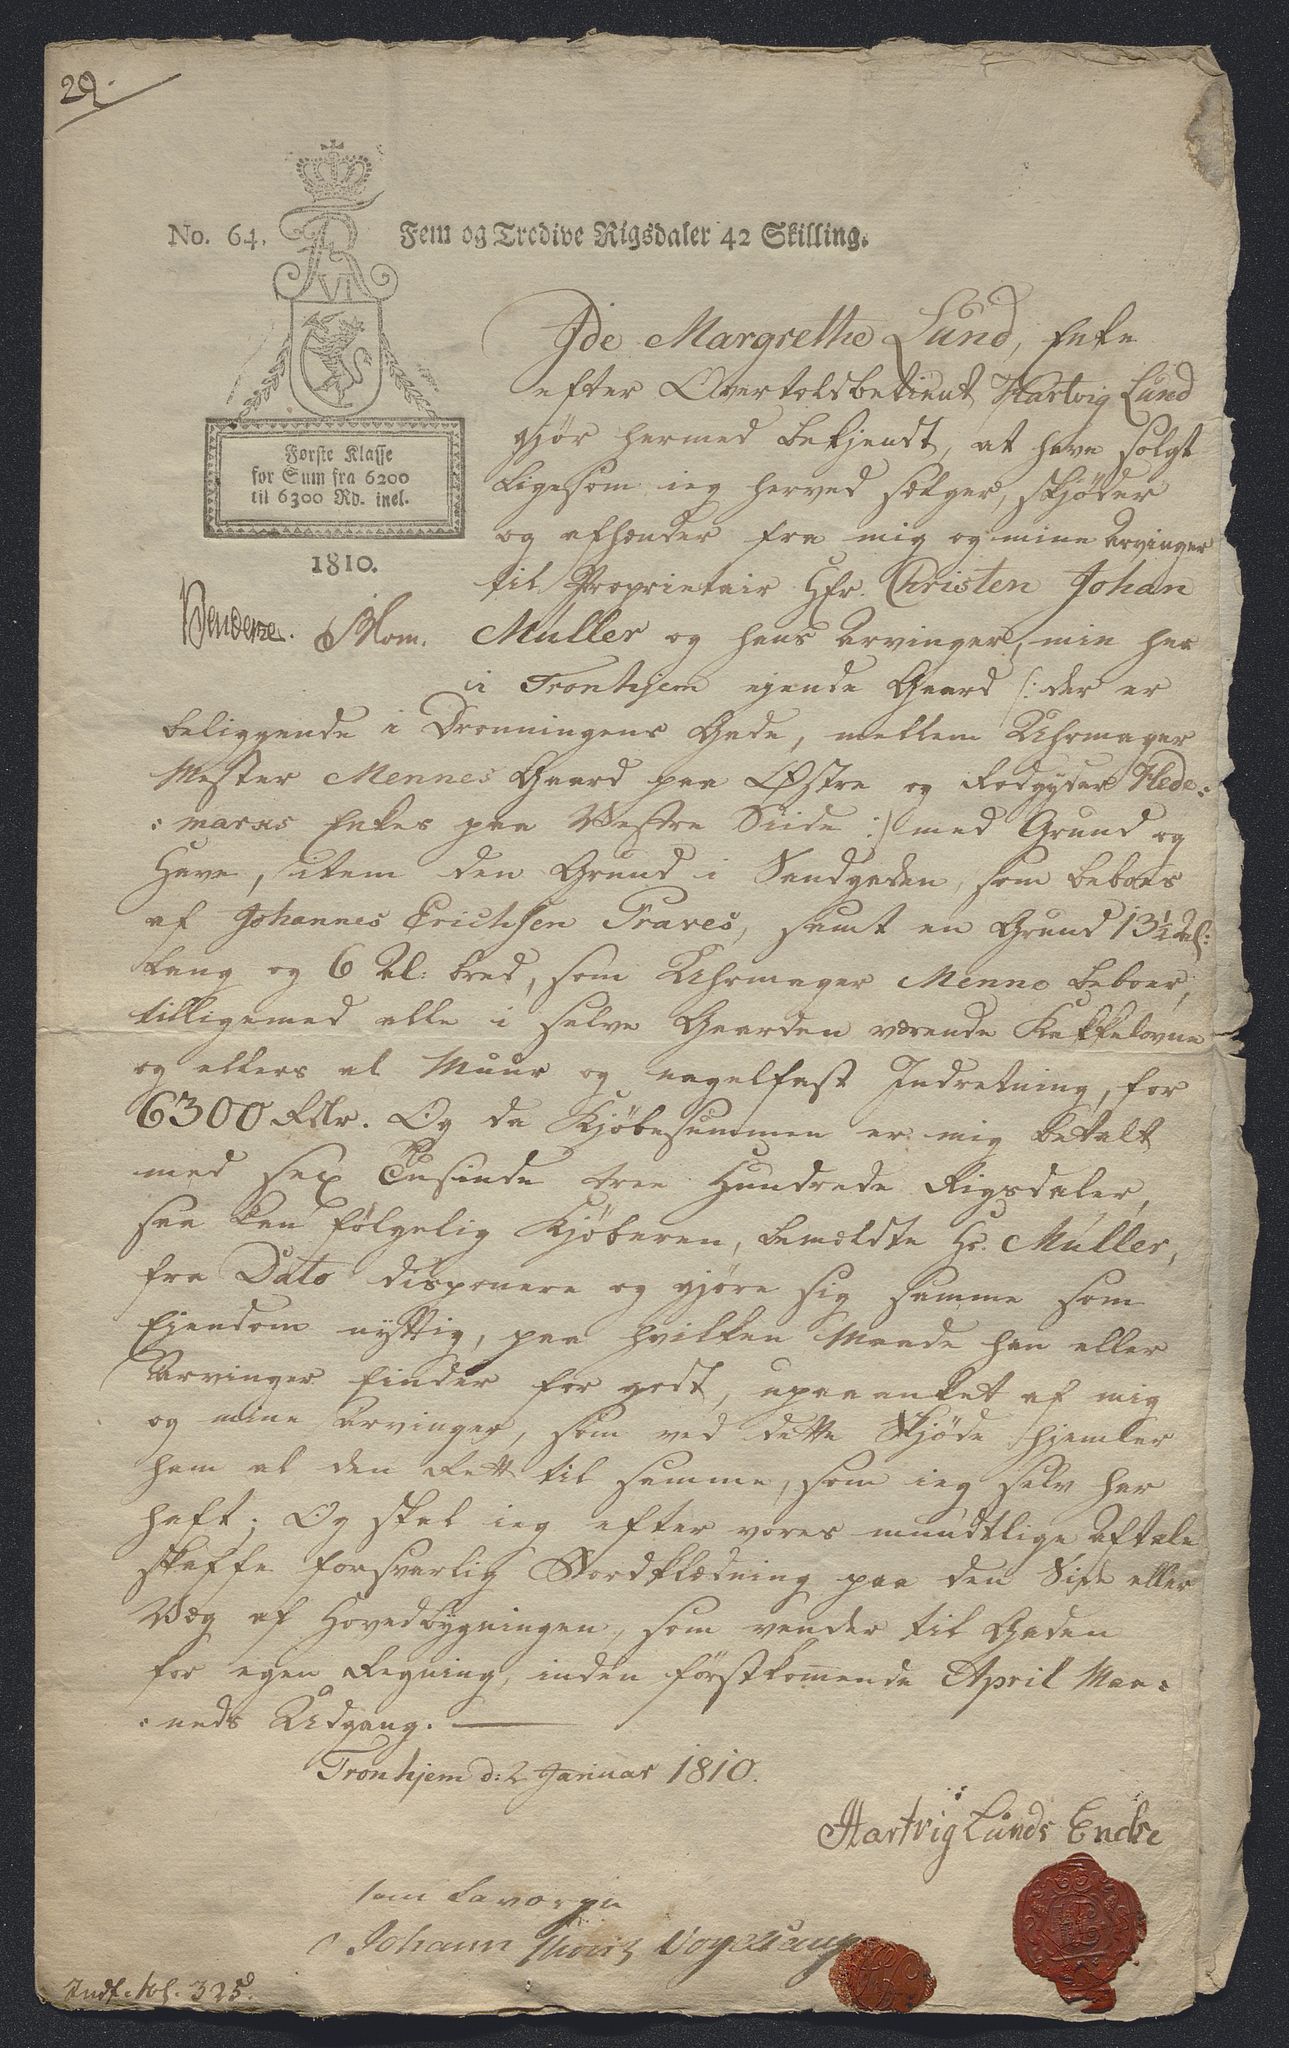 29.
No. 64. Fem og Tredive Rigsdaler 42 Skilling.
VI
Første Klasse
for Sum fra 6200
til 6300 Rd. incl.
1810.
Ide Margrethe Lund, Enke
efter Overtoldbetient Hartvig Lund
gjör hermed bekjendt, at have solgt
ligesom ieg herved sælger, skjöder
og afhænder fra mig og mine Arvinger
til Proprietair Hr. Christen Johan
Muller og hans Arvinger, min her
i Tronhjem ejende Gaard /: der er
beliggende i Dronningens Gade, mellem Uhrmager
Mester Mennes Gaard paa Østre og Rodgyder Hede-
marks Enkes paa Vestre Siide :/ med Grund og
Have, item den Grund i Sandgaden, som beboes
af Johannes Erichsen Traves, samt en Grund 13½ Al:
lang og 6 Al: bred, som Uhrmager Menne beboer,
tilligemed alle i selve Gaarden værende Kakkelovne
og ellers al Muur og nagelfast Indretning, for
6300 Rdlr. Og da Kjöbesummen er mig betalt
med sex Tusinde tree Hundrede Rigsdaler,
saa kan fölgelig Kjöberen, bemældte Hr. Muller,
fra Dato disponere og gjöre sig samme som
Ejendom nyttig, paa hvilken Maade han eller
Arvinger finder for godt, upaaanket af mig
og mine Arvinger, som ved dette Skjöde hjemler
ham al den Rett til samme, som ieg selv har
haft; Og skal ieg efter vores mundtlige Aftale
skaffe forsvarlig Bordklædning paa den Side eller
Væg af Hovedbygningen, som vender til Gaden
for egen Regning, inden förstkommende April Maa-
neds Udgang.
Tronhjem d: 2 Januar 1810.
Hartvig Lunds Encke
som Lavværge
Johann
Indf. fol. 325.